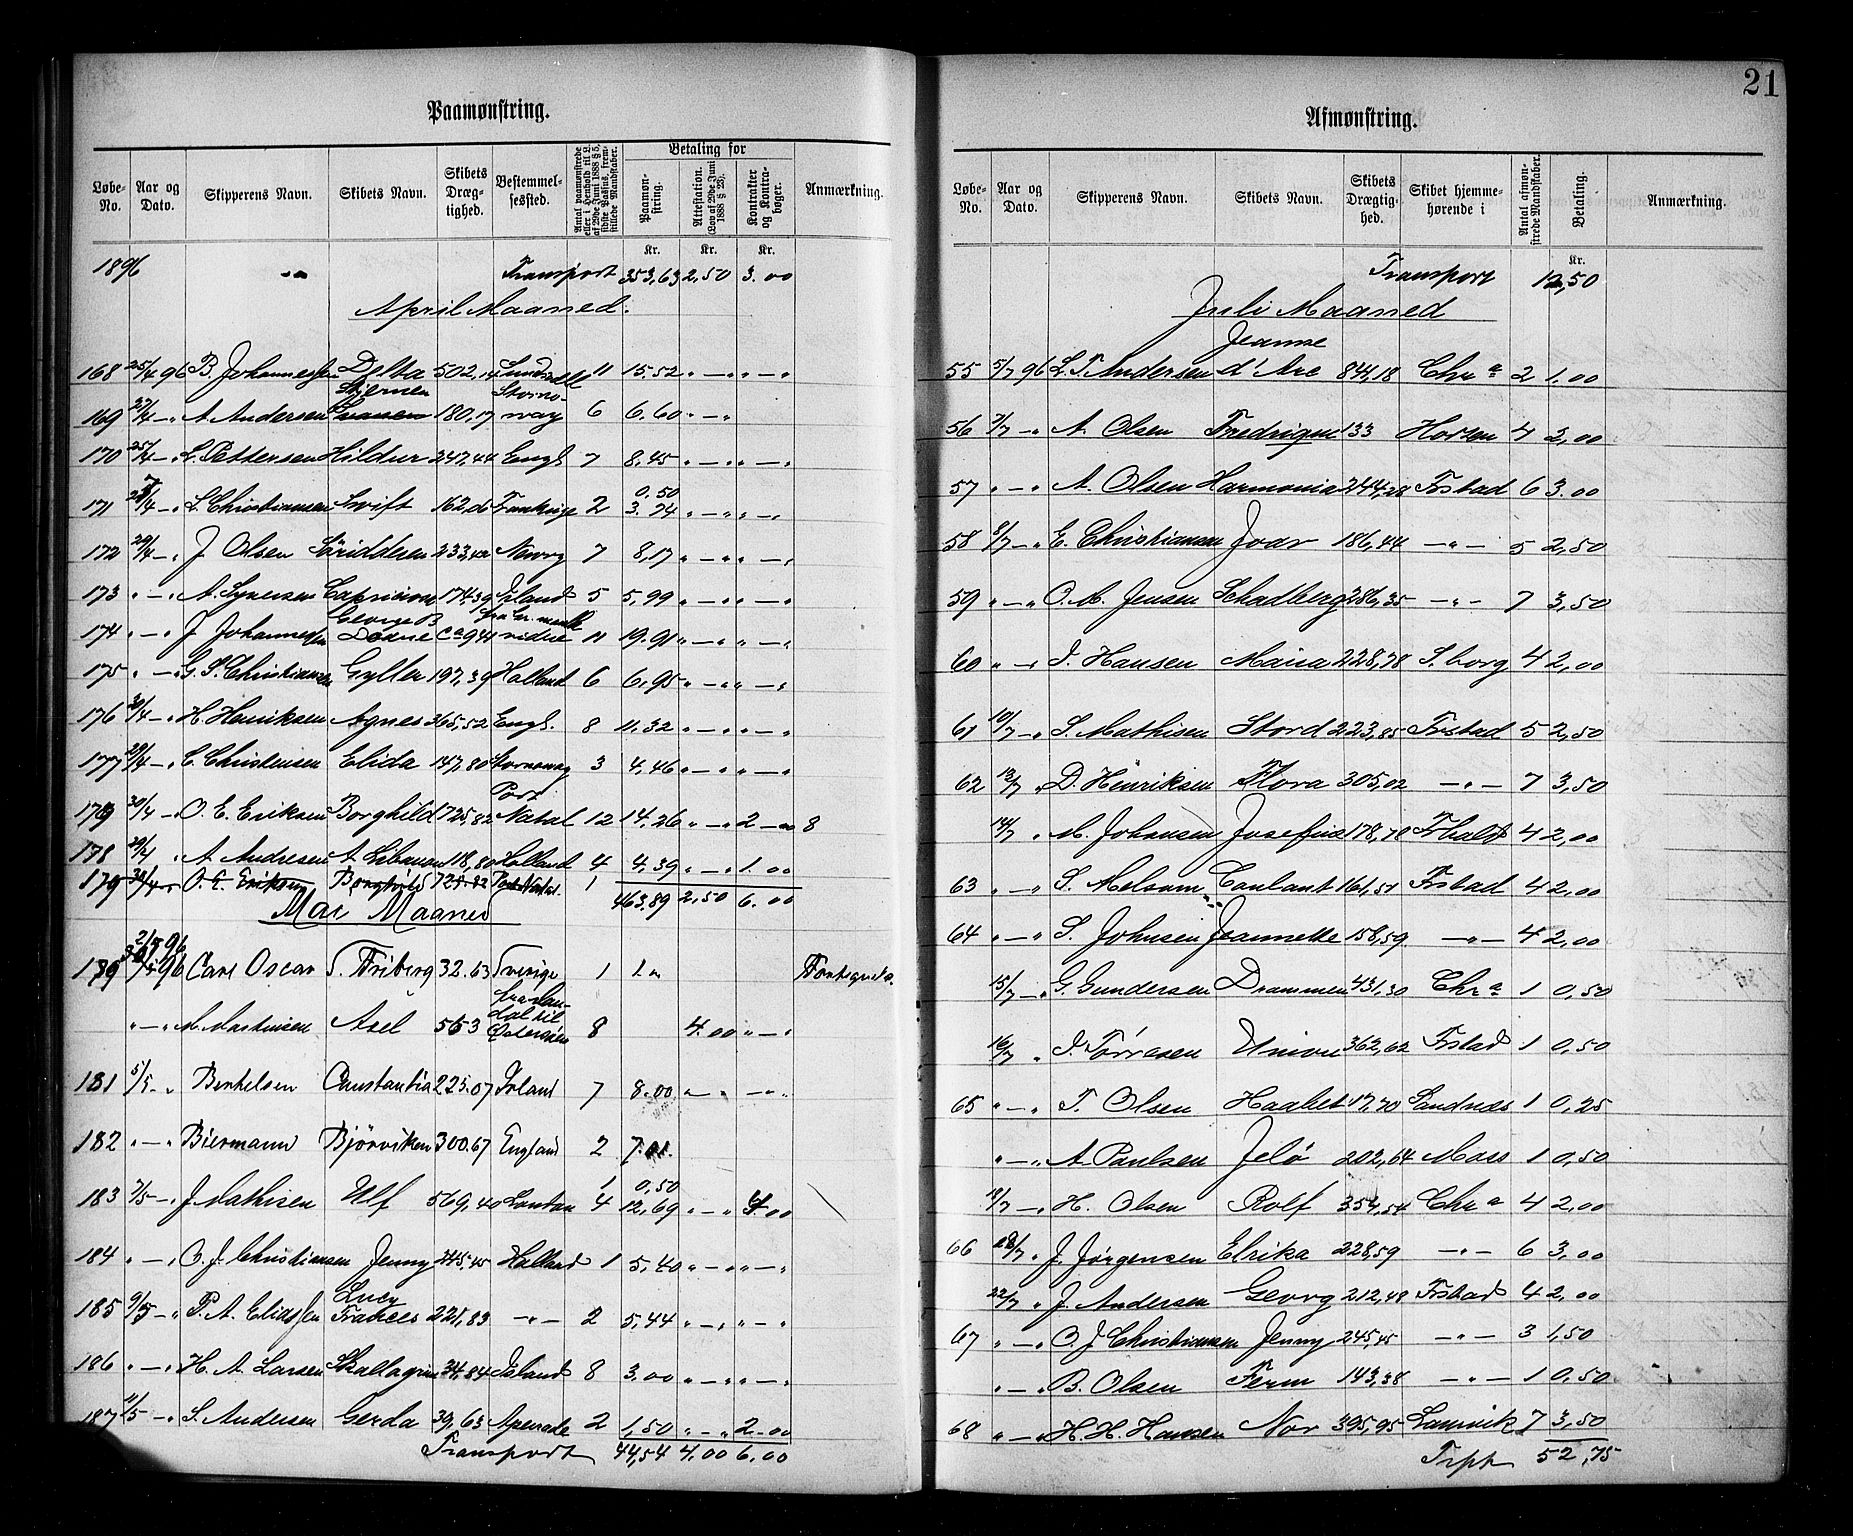 21
Paamønstring.
Løbe-No. Aar og Dato. Skipperens Navn. Skibets Navn. Skibets Dræg-tighed. Bestemmel-sessted. Antal paamønstrede eller i Henhold til L. af 29de Juni 1888 § 5, sidste Passus, frem-stillede Mandskaber. Betaling for Paamøn-string. Attestation. (Lov af 29de Juni 1888 § 23). Kontrakter og Kontra-bøger. Anmærkning.
Kr. Kr. Kr.
1896 Transport 353,63 2,50 3.00
April Maaned.
168 25/4 96 B. Johannessen Delta 502,14 Sundsvall 11 15.52 " — " " — "
Stjernen Storno-
169 27/4 — " A. Andersen Svanen 180,17 way 6 6.60 " — "
170 25/4 — " L. Pettersen Hildur 247,44 Engl 7 8,45 " — " " — "
0,50
171 28/4 — " L. Christiansen Swift 162,06 Frankrige 2 3.74 " — " " — "
172 29/4 — " J. Olsen 233,42 Norrg 7 8,17 " — " " — "
173 " — " A. Syversen Capricion 174,39 Irland 5 5,99 " — " " — "
George B
174 " — " J. Johannessen Doane Ca 941 vidre 11 19.91 " — " " — "
175 " — " G. S. Christiansen Gyller 197,39 Holland 6 6,95 " — " " — "
176 30/4 — " H. Henriksen Agnes 365,52 Engl. 8 11,32 " — " " — "
177 29/4 — " C. Christensen Elida 147,80 Stornoway 3 4,46 " — " " — "
Port
179 30/4 — " O. E. Eriksen Borghild 725,82 Natal 12 14,26 " — " 2 — " 8
178 29/4 " A. Andresen A. Libanon 118,80 Holland 4 4,39 " — " 1.00
179 30/4 — " O. E. Eriksen Borghild 725.82 Port Natal 1 463.89 2,50 6.00
Mai Maaned
2/5 96
179 96 Carl Oscar T. Friberg 32.63 Sverige 1 1 "
" — " M. Martinsen Axel 563 Østersøen 8 4.00 " — "
181 5/5 — " Berthelsen Constantia 225.07 Irland 7 8.00 " — " — " —
182 " — " Biermann Bjørviken 300.67 England 2 7.01.
1 0,50
183 7/5 — " J. Mathisen Ulf 569,40 London 4 12,69 " — " 4.00
184 " — " O. J. Christiansen Jenny 245,45 Holland 1 5,40 " — " " — "
Lucy
185 9/5 — " P. A. Eliassen Frances 221,83 — " — 2 5,44 " — " " — "
186 " — " H. A. Larsen Skallagrim 34,84 Island 8 3.00 " — " " — "
187 11/5 — " S. Andersen Gerda 39,63 Apenrade 2 1,50 " — " 2.00
Transport 44,54 4.00 6.00
Afmønstring.
Løbe-No. Aar og Dato. Skipperens Navn. Skibets Navn. Skibets Drægtig-hed. Skibet hjemme-hørende i Antal afmøn-strede Mandskaber. Betaling. Anmærkning.
Kr.
Transport 12,50
Juli Maaned
Jeanne
55 5/7 96 L. T. Andersen d'Arc 844,18 Chra 2 1.00
56 7/7 — " A. Olsen Fredrigen 133 Horsen 4 2,00
57 " — " A. Olsen Harmonia 244,28 Frstad 6 3.00
58 8/7 — " E. Christiansen Joar 186,44 — " — 5 2,50
59 " — " O. M. Jensen Schadberg 286,35 — " — 7 3,50
60 " — " J. Hansen Maria 228,78 S.borg 4 2,00
61 10/7 — " S. Mathisen Stord 223,85 Frstad 5 2,50
62 13/7 — " D. Henriksen Flora 305,02 — " — 7 3,50
14/7 " M. Johansen Josefine 178,78 Frhald 4 2,00
63 " — " S. Melsom Coulant 161,51 Frstad 4 2,00
64 " — " S. Johnsen Jeannette 158,59 — " — 4 2,00
15/7 — " G. Gundersen Drammen 431,30 Chra 1 0,50
16/7 " J. Tørresen Union 362,62 Frstad 1 0,50
65 " — " T. Olsen Haabet 17,70 Sandnæs 1 0,25
" — " A. Paulsen Jelø 202,64 Moss 1 0,50
18/7 — " H. Olsen Rolf 354,54 Chra 4 2,00
66 18/7 " J. Jørgensen Elrika 228,59 — " — 6 3,00
22/7 " J. Andersen Georg 212,48 Frstad 4 2,00
67 " — " O. J. Christiansen Jenny 245,45 — " — 3 1,50
" — " B. Olsen Ferm 143,38 — " — 1 0,50
68 " — " H. H. Hansen Nor 395,95 Laurvik 7 3,50
Trpt 52,75